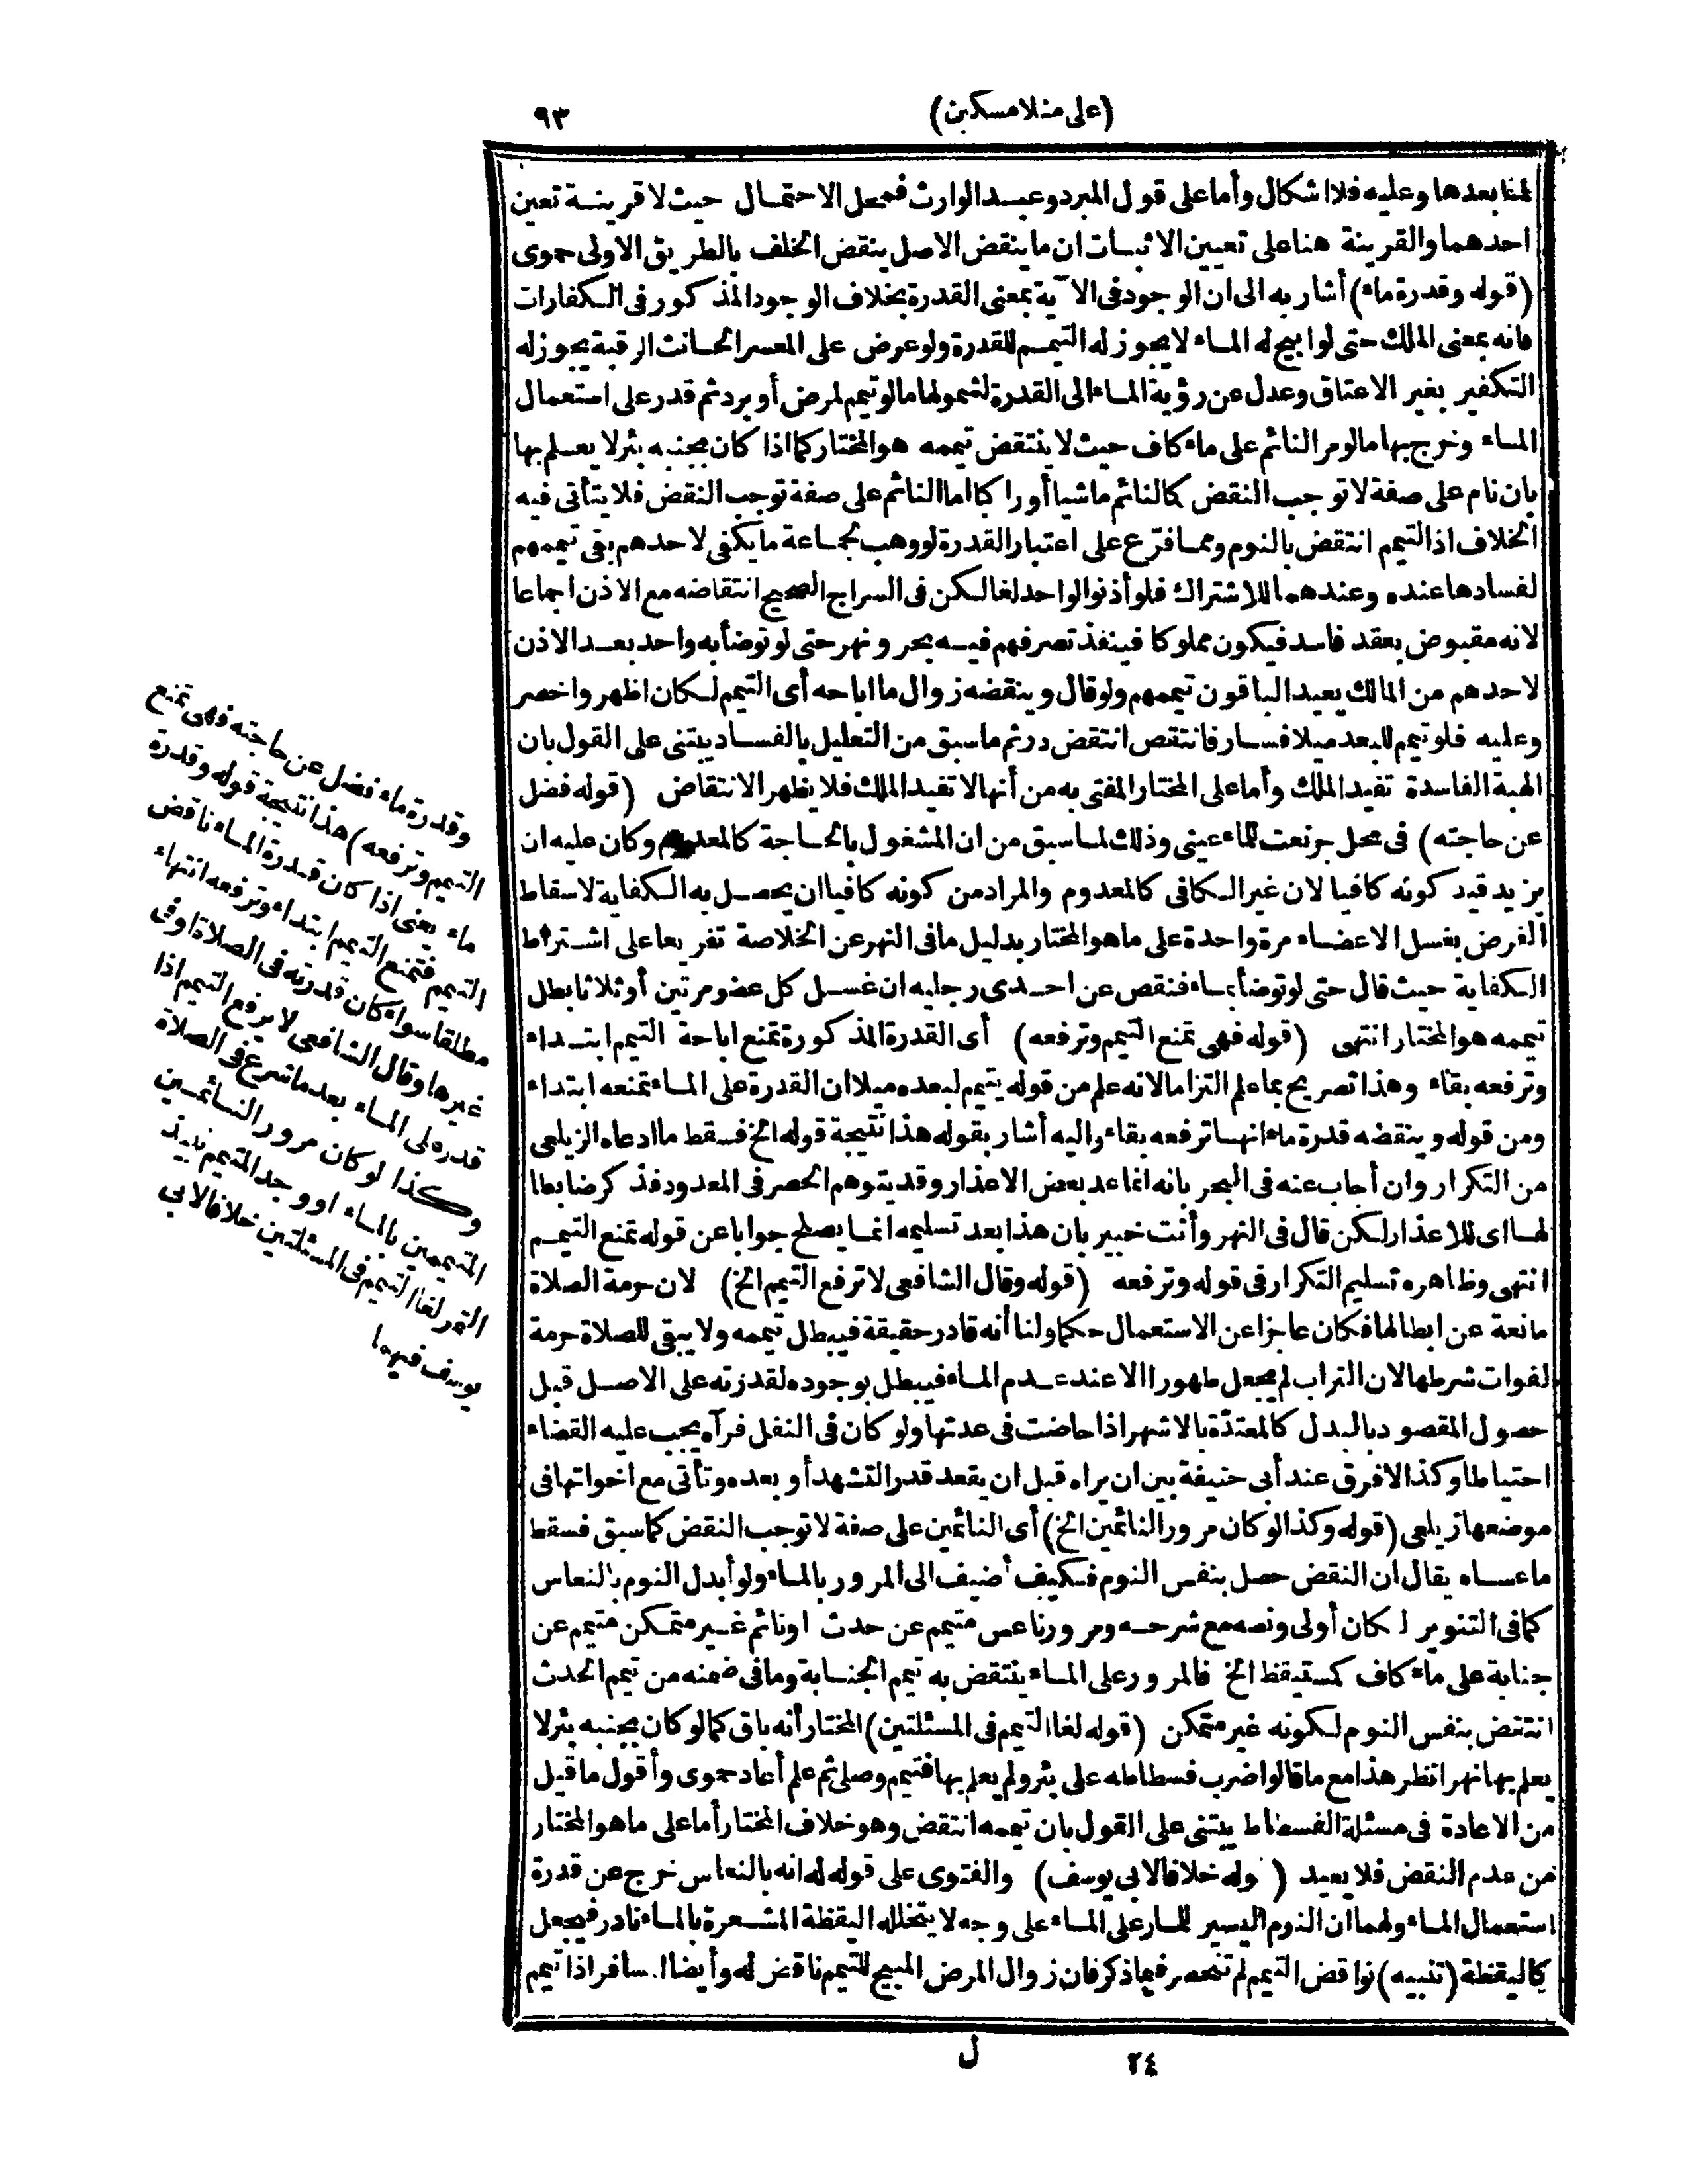 (على منلا مسكين)
٩٣
لمنا بعدها وعليه فلا اشكال وأما على قول المبرد وعبد الوارث فمحمل الاحتمال حيث لا قرينة تعين
احدهما والقرينة هنا على تعيين الاثبات ان ما ينقض الاصل ينقض الخلف بالطريق الاولى حموى
(قوله وقدرة ماء) أشار به الى ان الوجود فى الآية بمعنى القدرة بخلاف الوجود المذكور فى الكفارات
فانه بمعنى الملك حتى لو ابيح له الماء لا يجوز له التيمم للقدرة ولو عرض على المعسر الحانث الرقبة يجوز له
التكفير بغير الاعتاق وعدل عن رؤية الماء الى القدرة لشمولها ما لو تيمم لمرض أو برد ثم قدر على استعمال
الماء وخرج بها ما لو مر النائم على ماء كاف حيث لا ينتقض تيممه هو المختار كما اذا كان بجنبه بئر لا يعلم بها
بان نام على صفة لا توجب النقض كالنائم ماشيا أو راكبا اما النائم على صفة توجب النقض فلا يتأتى فيه
الخلاف اذ التيمم انتقض بالنوم ومما فترع على اعتبار القدرة لو وهب لجماعة ما يكفى لاحدهم بقى تيممهم
لفسادها عنده وعندهما للاشتراك فلو أذنوا لواحد لغا لكن فى السراج الصحيح انتقاضه مع الاذن اجماعا
لانه مقبوض بعقد فاسد فيكون مملوكا فينفذ تصرفهم فيه بحر ونهر حتى لو توضأ به واحد بعد الاذن
لاحدهم من المالك يعيد الباقون تيممهم ولو قال وينقضه زوال ما اباحه أى التيمم لكان اظهر واخصر
وعليه فلو تيمم للبعد ميلا فسار فانتقص انتقض در ثم ما سبق من التعليل بالفساد يبتنى على القول بان
الهبة الفاسدة تفيد الملك وأما على المختار المفتى به من أنها لا تفيد الملك فلا يظهر الانتقاض (قوله فضل
عن حاجته) فى محل جر نعت للماء عينى وذلك لما سبق من ان المشغول بالحاجة كالمعدوم وكان عليه ان
يزيد قيد كونه كافيا لان غير الكافى كالمعدوم والمراد من كونه كافيا ان يحصل به الكفاية لاسقاط
الفرض بغسل الاعضاء مرة واحدة على ما هو المختار بدليل ما فى النهر عن الخلاصة تفريعا على اشتراط
الكفاية حيث قال حتى لو توضأ بماء فنقص عن احدى رجليه ان غسل كل عضو مرتين أو ثلاثا بطل
تيممه هو المختار انتهى (قوله فهى تمنع التيمم وترفعه) أى القدرة المذكورة تمنع اباحة التيمم ابتداء
وترفعه بقاء وهذا تصريح بما علم التزاما لانه علم من قوله يتيمم لبعده ميلا ان القدرة على الماء تمنعه ابتداء
ومن قوله وينقضه قدرة ماء انها ترفعه بقاء واليه أشار بقوله هذا نتيجة قوله الخ فسقط ما ادعاه الزيلعى
من التكرار وان أجاب عنه فى البحر بانه انما عد بعض الاعذار وقد يتوهم الحصر فى المعدود فذكر ضابطا
لها اى للاعذار لكن قال فى النهر وأنت خبير بان هذا بعد تسليمه انما يصلح جوابا عن قوله تمنع التيمم
انتهى وظاهره تسليم التكرار فى قوله وترفعه (قوله وقال الشافعى لا ترفع التيمم الخ) لان حرمة الصلاة
مانعة عن ابطالها فكان عاجزا عن الاستعمال حكما ولنا أنه قادر حقيقة فيبطل تيممه ولا يبقى للصلاة حرمة
لفوات شرطها لان التراب لم يجعل طهورا الا عند عدم الماء فيبطل بوجوده لقدرته على الاصل قبل
حصول المقصود بالبدل كالمعتدّة بالاشهر اذا حاضت فى عدتها ولو كان فى النفل فرآه يجب عليه القضاء
احتياطا وكذا لا فرق عند أبى حنيفة بين ان يراه قبل ان يقعد قدر التشهد أو بعده وتأتى مع اخواتها فى
موضعها زيلعى (قوله وكذا لو كان مرور النائمين الخ) أى النائمين على صفة لا توجب النقض كما سبق فسقط
ما عساه يقال ان النقض حصل بنفس النوم فكيف أضيف الى المرور بالماء ولو أبدل النوم بالنعاس
كما فى التنوير لكان أولى ونصه مع شرحه ومرور ناعس متيمم عن حدث او نائم غير متمكن متيمم عن
جنابة على ماء كاف كمستيقظ الخ فالمرور على الماء ينتقض به تيمم الجنابة وما فى ضمنه من تيمم الحدث
انتقض بنفس النوم لكونه غير متمكن (قوله لغا التيمم فى المسئلتين) المختار أنه باق كما لو كان بجنبه بئر لا
يعلم بها نهر انظر هذا مع ما قالوا ضرب فسطاطه على بئر ولم يعلم بها فتيمم وصلى ثم علم أعاد حموى وأقول ما قيل
من الاعادة فى مسئلة الفسطاط يبتنى على القول بان تيممه انتقض وهو خلاف المختار أما على ما هو المختار
من عدم النقض فلا يعيد (قوله خلافا لابى يوسف) والفتوى على قوله له انه بالنعاس خرج عن قدرة
استعمال الماء ولهما ان النوم اليسير للمار على الماء على وجه لا يتخلله اليقظة المشعرة بالماء نادر فيجعل
كاليقظة (تنبيه) نواقض التيمم لم تنحصر فيما ذكر فان زوال المرض المبيح للتيمم ناقض له وأيضا المسافر اذا تيمم
وقدرة ماء فضل عن حاجته فهى تمنع
التيمم وترفعه) هذا نتيجة قوله وقدرة
ماء يعنى اذا كان قدرة الماء ناقض
التيمم فتمنع التيمم ابتداء وترفعه انتهاء
مطلقا سواء كان قدرته فى الصلاة او فى
غيرها وقال الشافعى لا يرفع التيمم اذا
قدر على الماء بعد ما شرع فى الصلاة
وكذا لو كان مرور النائمين
المتيممين بالماء او وجد المتيمم نبيذ
التمر لغا التيمم فى المسئلتين خلافا لابى
يوسف فيهما
ل
٢٤